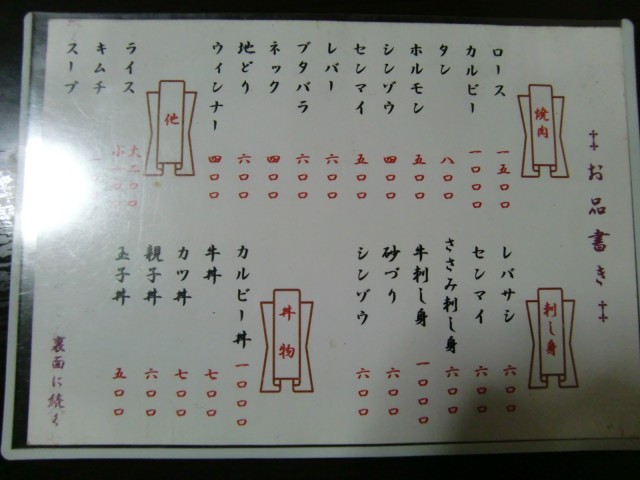 ‡お品書き‡
焼肉
ロース 一五〇〇
カルビー 一〇〇〇
タン 八〇〇
ホルモン 五〇〇
シンゾウ 四〇〇
センマイ 五〇〇
レバー 六〇〇
ブタバラ 六〇〇
ネック 四〇〇
地どり 六〇〇
ウィンナー 四〇〇
他
ライス 大二〇〇
小一〇〇
キムチ
スープ
刺し身
レバサシ 六〇〇
センマイ 六〇〇
ささみ刺し身 六〇〇
牛刺し身 一〇〇〇
砂づり 六〇〇
シンゾウ 六〇〇
丼物
カルビー丼 一〇〇〇
牛丼 七〇〇
カツ丼 七〇〇
親子丼 六〇〇
玉子丼 五〇〇
裏面に続く